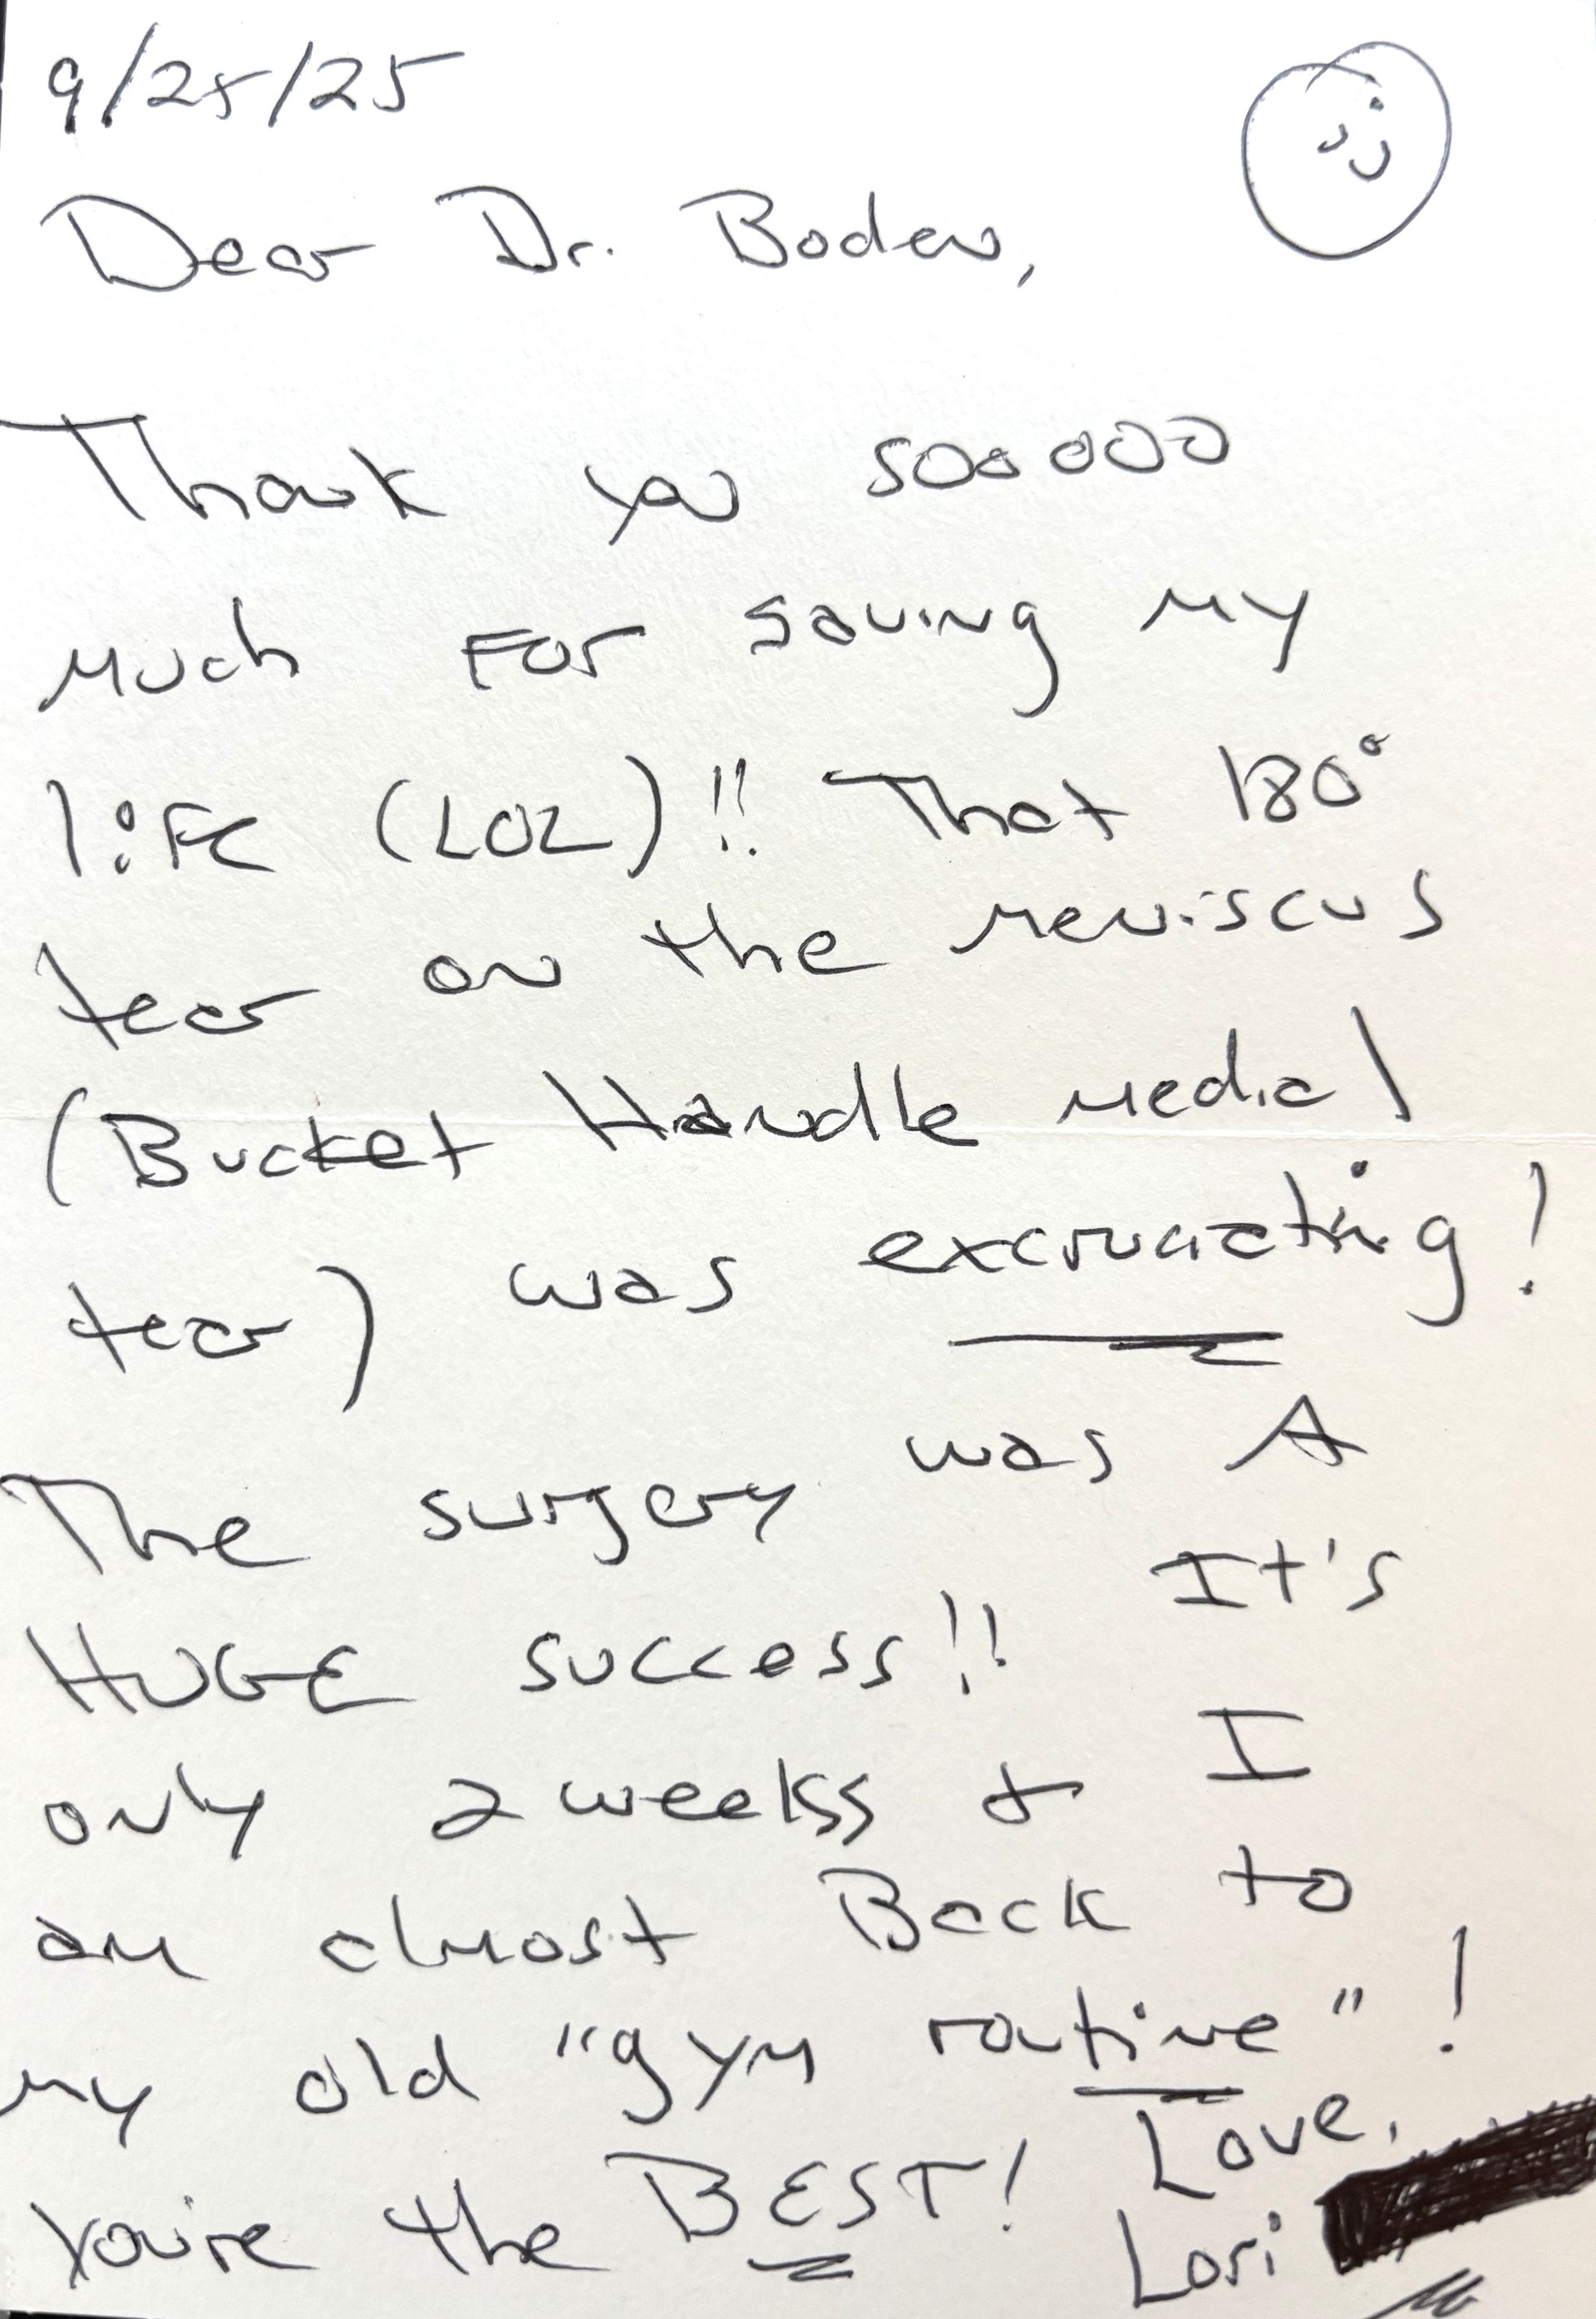 9/25/25
Dear Dr. Boden,
Thank you soooooo
much For saving my
liFe (LOL)!! That 180°
tear on the meniscus
(Bucket Handle medial
tear) was excruciating!
The surgery was A
HUGE success!! It's
only 2 weekss & I
am almost Back to
my old "gym routine"!
You're the BEST! Love,
Lori